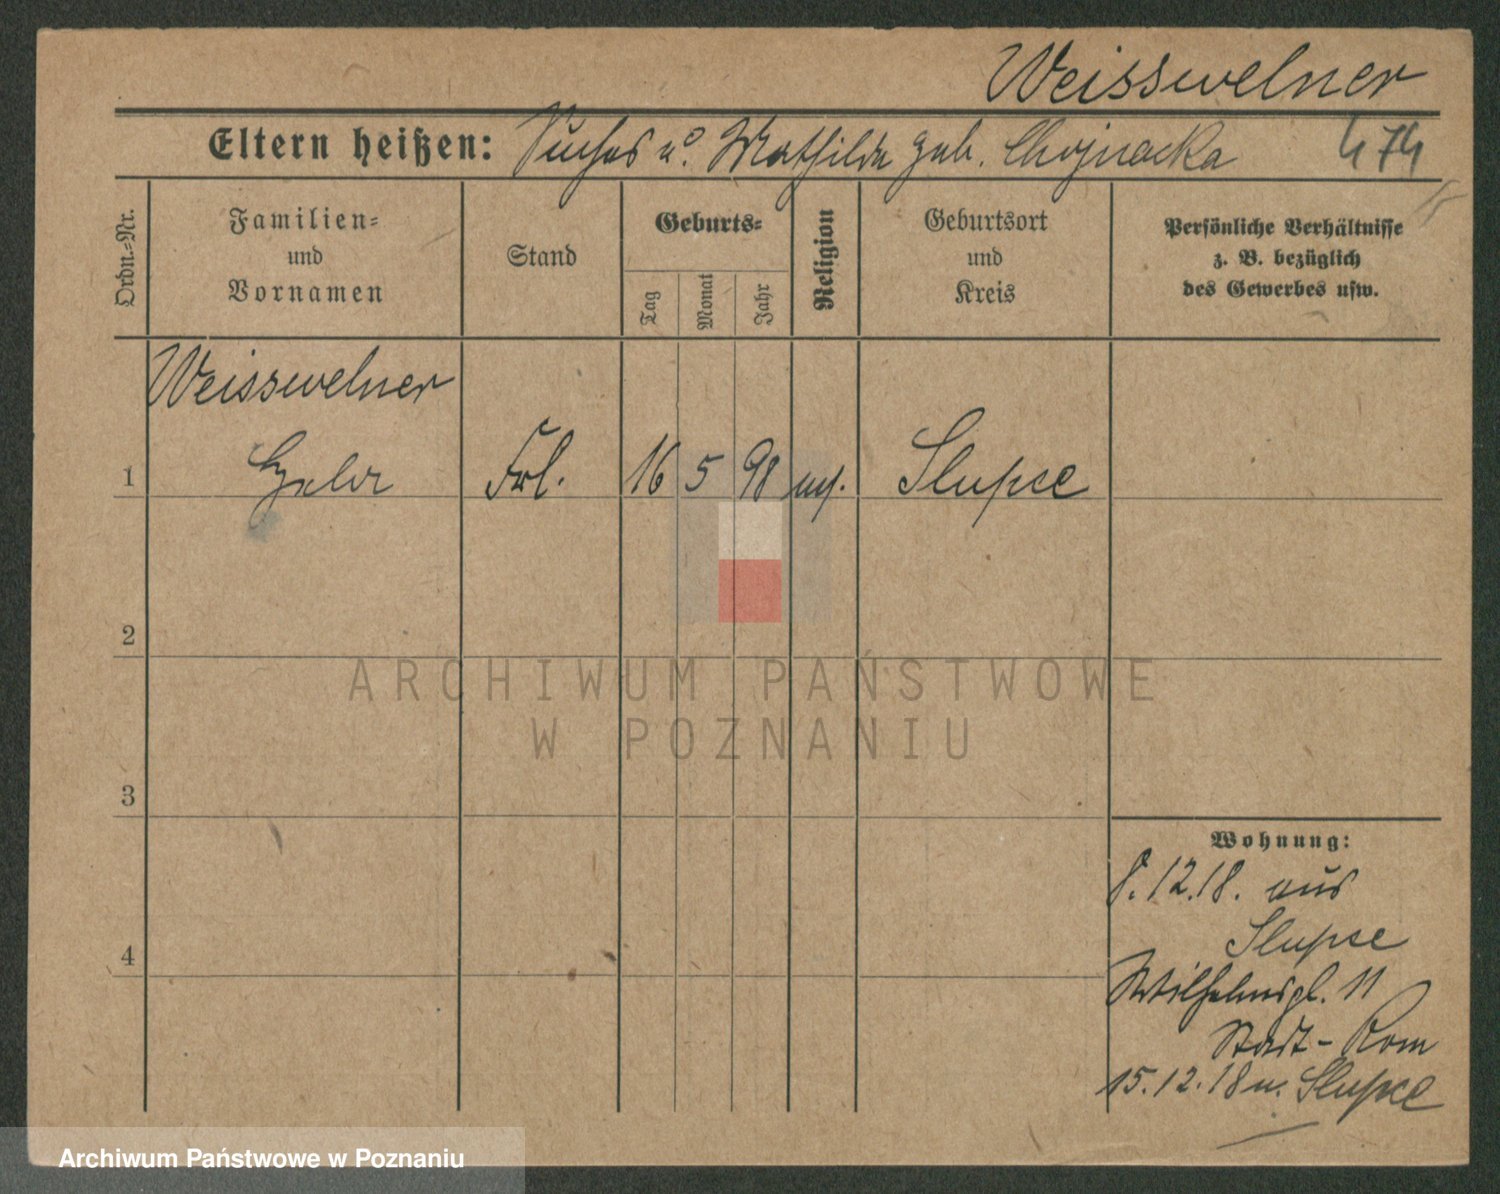 Weisswelner
Eltern heißen: u. Mathilde geb. Chojnacka 474
Ordn.=Nr.
Familien=
und
Vornamen
Stand
Geburts=
Tag
Monat
Jahr
Religion
Geburtsort
und
Kreis
Persönliche Verhältnisse
z. B. bezüglich
des Gewerbes usw.
Weisswelner
1 Frl. 16 5 98 Slupce
2
3
4
ARCHIWUM PAŃSTWOWE
W POZNANIU
Wohnung:
8.12.18. aus
Slupce
Wilhelmspl. 11
Stadt-Rom
15.12.18 n. Slupce
Archiwum Państwowe w Poznaniu